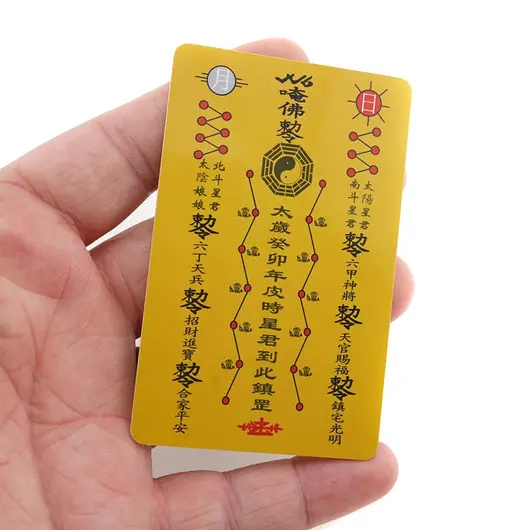 月
日
唵佛勅令
太歲癸卯年皮時星君到此鎮罡
太陽星君
南斗星君
勅令六甲神將
勅令天官賜福
勅令鎮宅光明
北斗星君
太陰娘娘
勅令六丁天兵
勅令招財進寶
勅令合家平安